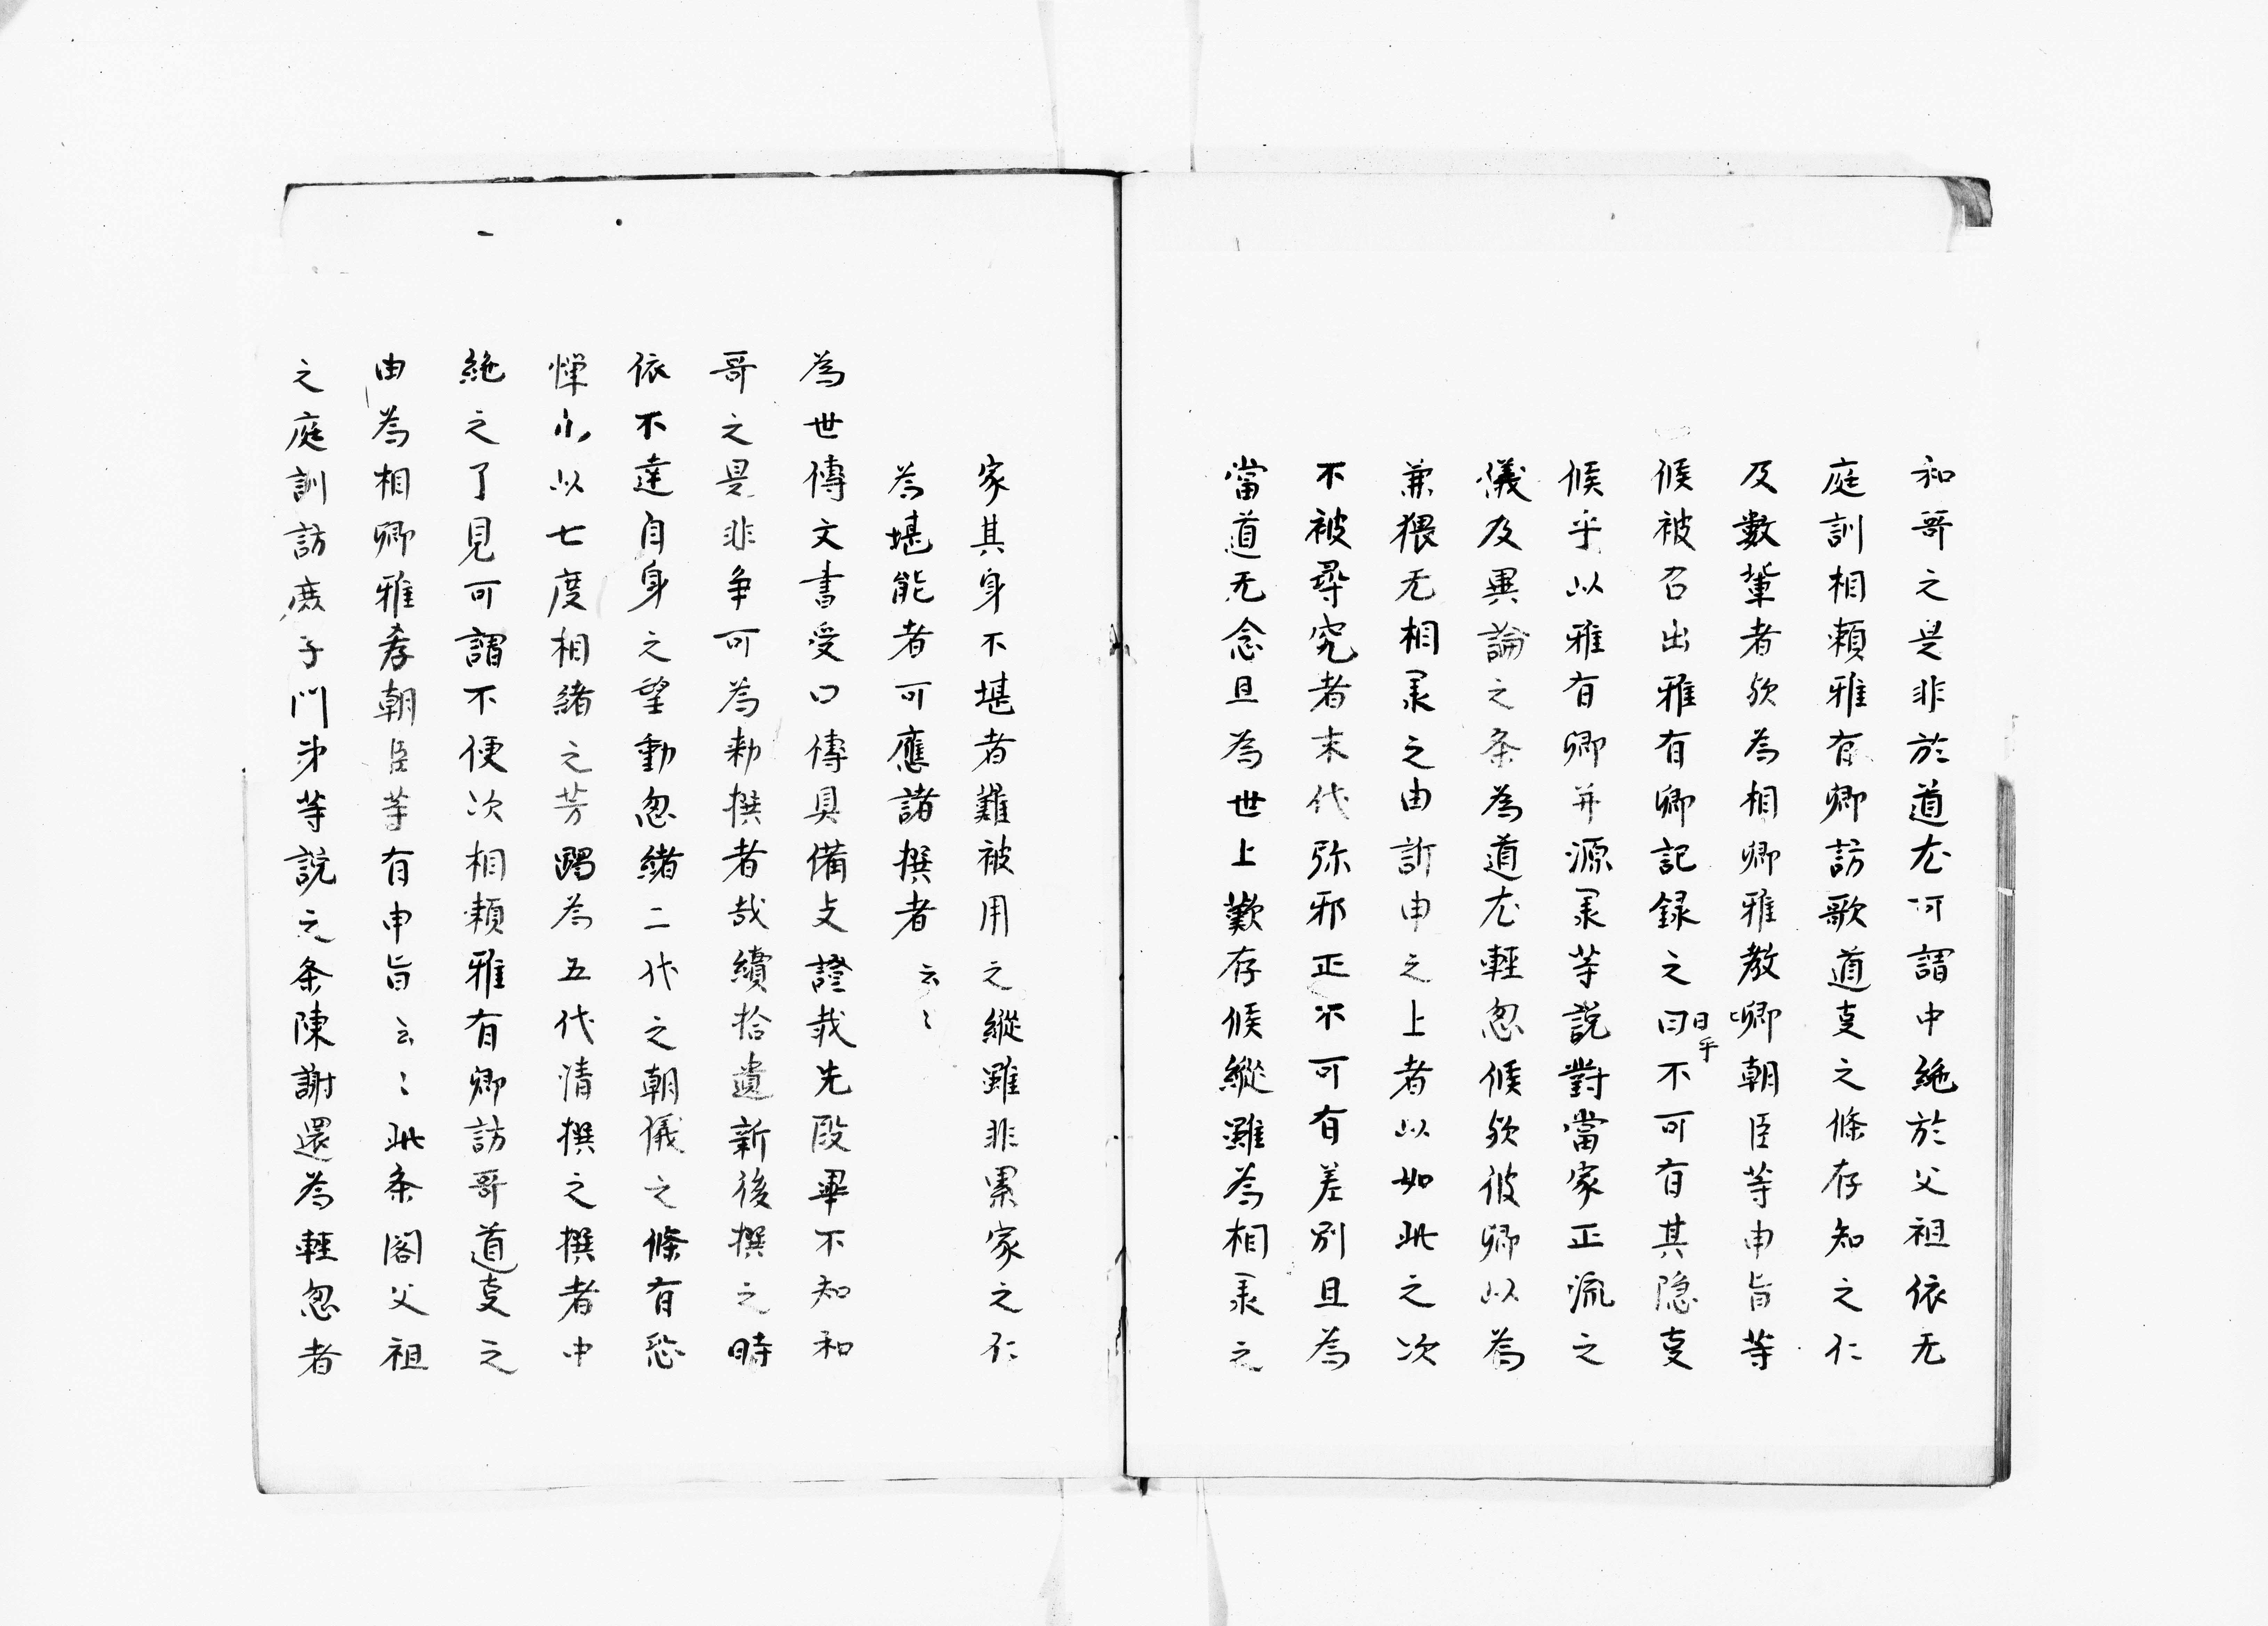 和哥之是非於道尤可謂中絶於父祖依无
庭訓相頼雅有卿訪歌道㕝之條存知之仁
及數輩者欤為相卿雅教卿朝臣等申旨等
候被召出雅有卿記録之曰不可有其隠㕝
日乎
候乎以雅有卿并源承等説對當家正流之
儀及異論之条為道尤輕忽候欤彼卿以為
兼猥无相承之由訴申之上者以如此之次
不被尋究者末代弥邪正不可有差別且為
當道无念且為世上歎存候縱雖為相承之
家其身不堪者難被用之縱雖非累家之仁
為堪能者可應諸撰者云〻
為世傳文書受口傳具備支證哉先段畢不知和
哥之是非争可為勅撰者哉續拾遺新後撰之時
依不達自身之望動忽緒二代之朝儀之條有恐
憚小以七度相緒之芳躅為五代清撰之撰者中
絶之了見可謂不便次相頼雅有卿訪哥道㕝之
由為相卿雅孝朝臣等有申旨云〻此条閣父祖
之庭訓訪庶子門弟等説之条陳謝還為輕忽者